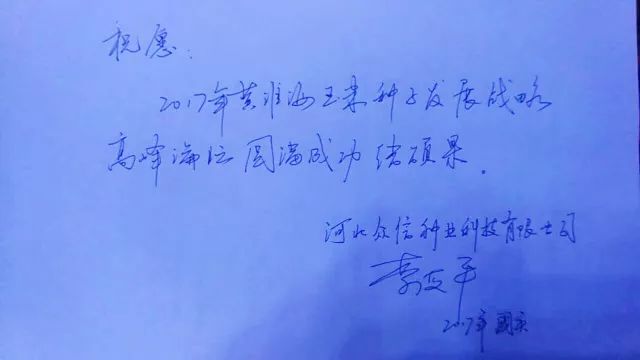 祝愿：
2017年黄淮海玉米种子发展战略
高峰论坛圆满成功 结硕果.
河北众信种业科技有限公司
李
2017年 國庆